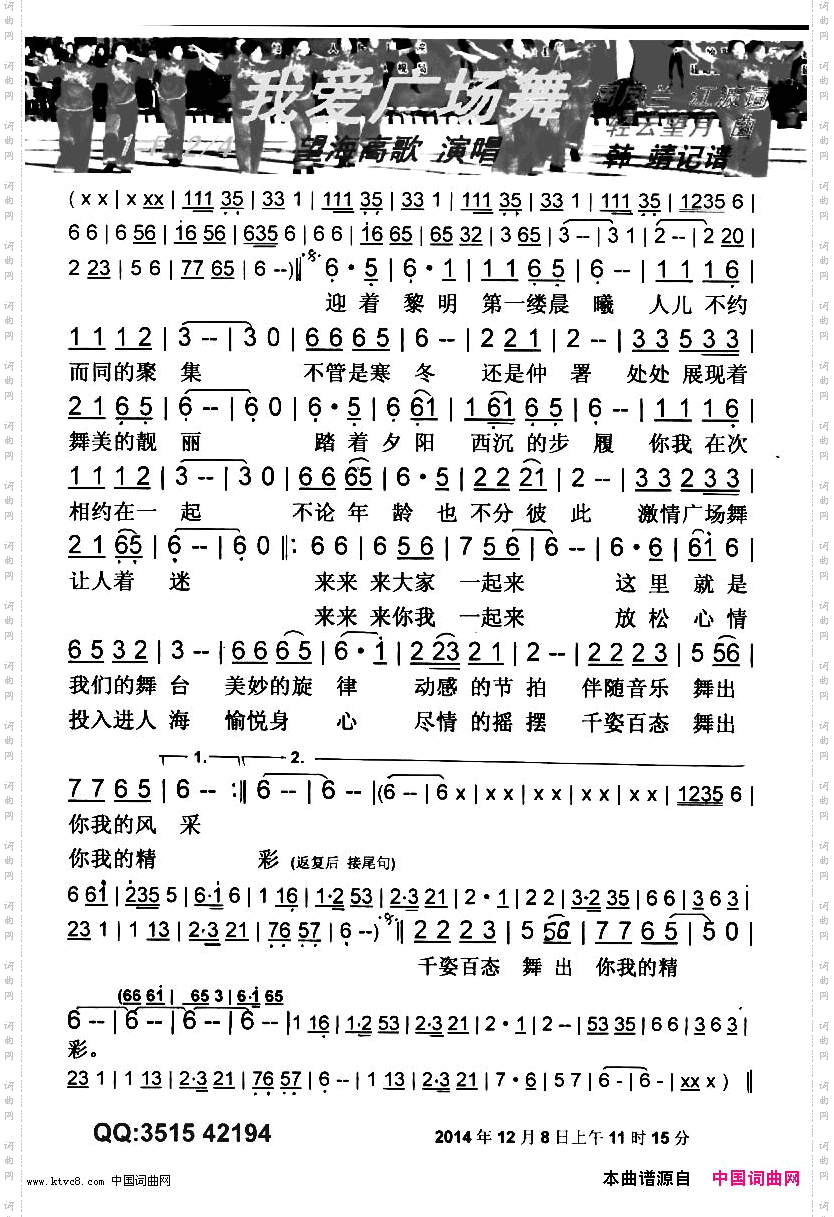 我爱广场舞
1=F 2/4
江波词
轻云望月 曲
望海高歌 演唱
韩 靖记谱
(x x | x xx | 111 35 | 33 1 | 111 35 | 33 1 | 111 35 | 33 1 | 111 35 | 1235 6 |
6 6 | 6 56 | 16 56 | 635 6 | 6 6 | 16 65 | 65 32 | 3 65 | 3 -- | 3 1 | 2 -- | 2 20 |
2 23 | 5 6 | 77 65 | 6 --) 6 · 5 | 6 · 1 | 1 1 6 5 | 6 -- | 1 1 1 6 |
迎 着 黎 明 第一缕晨 曦 人儿 不约
1 1 1 2 | 3 -- | 3 0 | 6 6 6 5 | 6 -- | 2 2 1 | 2 -- | 3 3 5 3 3 |
而同的聚 集 不管是寒 冬 还是仲 署 处处 展现着
2 1 6 5 | 6 -- | 6 0 | 6 · 5 | 6 61 | 1 61 6 5 | 6 -- | 1 1 1 6 |
舞美的靓 丽 踏 着 夕 阳 西沉 的步 履 你我 在次
1 1 1 2 | 3 -- | 3 0 | 6 6 65 | 6 · 5 | 2 2 21 | 2 -- | 3 3 2 3 3 |
相约在一 起 不论 年 龄 也 不分 彼 此 激情广场舞
2 1 65 | 6 -- | 6 0 ‖: 6 6 | 6 5 6 | 7 5 6 | 6 -- | 6 · 6 | 61 6 |
让人着 迷 来来 来大家 一起来 这 里 就 是
来来 来你我 一起来 放 松 心 情
6 5 3 2 | 3 -- | 6 6 6 5 | 6 · 1 | 2 23 2 1 | 2 -- | 2 2 2 3 | 5 56 |
我们的舞 台 美妙的旋 律 动感 的节 拍 伴随音乐 舞出
投入进人 海 愉悦身 心 尽情 的摇 摆 千姿百态 舞出
1. 2.
7 7 6 5 | 6 -- :‖ 6 -- | 6 -- |(6 -- | 6 x | x x | x x | x x | x x | x x | 1235 6 |
你我的风 采
你我的精 彩 (返复后 接尾句)
6 61 | 235 5 | 6·1 6 | 1 16 | 1·2 53 | 2·3 21 | 2 · 1 | 2 2 | 3·2 35 | 6 6 | 3 63 |
23 1 | 1 13 | 2·3 21 | 76 57 | 6 --) ‖ 2 2 2 3 | 5 56 | 7 7 6 5 | 5 0 |
千姿百态 舞 出 你我的精
(66 61 | 65 3 | 6·1 65
6 -- | 6 -- | 6 -- | 6 -- | 1 16 | 1·2 53 | 2·3 21 | 2 · 1 | 2 -- | 53 35 | 6 6 | 3 63 |
彩。
23 1 | 1 13 | 2·3 21 | 76 57 | 6 -- | 1 13 | 2·3 21 | 7 · 6 | 5 7 | 6 - | 6 - | xx x ) ‖
QQ:3515 42194
2014 年 12 月 8 日上午 11 时 15 分
www.ktvc8.com 中国词曲网
本曲谱源自 中国词曲网